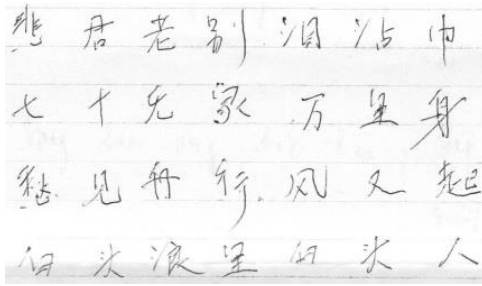 悲君老别泪沾巾
七十无家万里身
愁见舟行风又起
白头浪里白头人